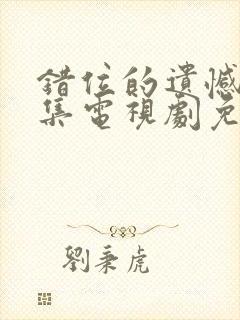 錯位的遺憾
集電視劇免
劉秉虎